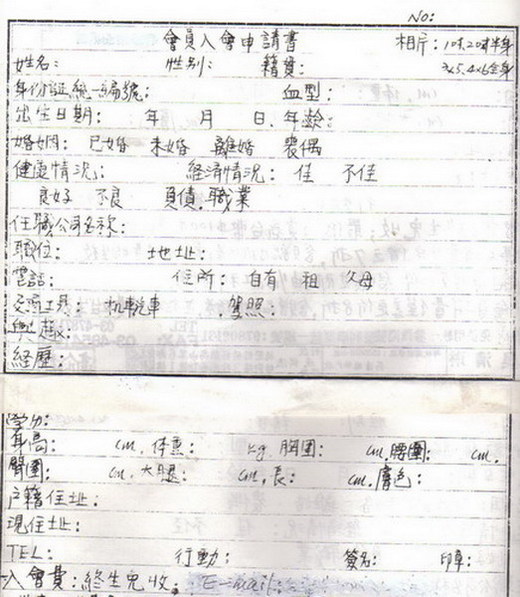 NO:
會員入會申請書 相片: 1吋.2吋半身
姓名: 性別: 籍貫: 3x5.4x6全身
身份證統一編號: 血型:
出生日期: 年 月 日.年齡:
婚姻: 已婚 未婚 離婚 喪偶
健康情況: 經濟情況: 佳 不佳
良好 不良 負債.職業
任職公司名稱:
職位: 地址:
電話: 住所: 自有 租 父母
交通工具: 机車汽車 駕照:
興趣:
經歷:
身高: cm.体重: kg.胸圍: cm.腰圍: cm.
臀圍: cm.大腿: cm.長: cm.膚色:
戶籍住址:
現住址:
TEL: 行動: 簽名: 印章:
入會費:終生免收. E-mail: